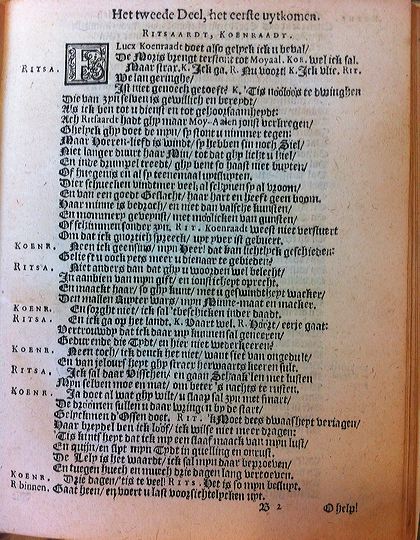 Het tweede Deel, het eerste uytkomen.
RITSAARDT, KOENRAADT.
RITSA. FLucx Koenraadt doet also gelyck ick u beval/
De Moris brengt terstont tot Moyaal. KOE. wel ick sal.
Maar strax. K. Ick ga. R. Nu voort! K. Ick vlie. RIT.
We lan geringhe/
Ist niet genoech getoeft? K. 'Tis nodeloos te dwinghen
Die van zyn selven is gewillich en bereydt/
Als ick ben tot u dienst en tot gehoorsaamheydt:
Ach Ritsaarde hadt ghy maar Moy-Aal en gonst verkregen/
Ghelyck ghy doet de myn/ sy stont u nimmer tegen:
Maar Hoeren-liefd is windt/ sy hebben sin noch Siel/
Niet langer duurt haar Min/ tot dat ghy licht u hiel/
En inde drumpel treedt/ ghy bent so haast niet buyten/
Of
Hier schuecken vindtmen veel; al schynen sy al vroom/
En van een goedt Geslacht/ haar hart en heeft geen boom.
Haar minne is bedroch/ en niet dan valsche kunsten/
En mommery geveynst/ met van gunsten/
Of schimmen sonder zyn. RIT. Koenraadt weest niet versteurt
Om dat ick gnortich spreeck/ upt yver ist gebeurt.
KOENR. Neen ick geensins/ myn Heer! dat kan lichtelyck geschieden:
Gelieft u oock yets meer u dienaar te gebieden?
RITSA. Niet anders dan dat ghy u woorden wel beleght/
In aanbien van myn gift/ en konstich oprecht.
En maackt haar/ so ghy kunt/ met u geswindtheyt wacker/
Den mallen Ruyter wars/ myn Minne-maat en macker.
KOENR. En sorght niet/ ick sal 'tbeschicken inder daadt.
RITSA. En ick ga op het landt. K. Vaart wel. R. Hoort/ eerje gaat:
Vertrouwdy dat ick daar my kunnen sal generen/
Gedurende die Tydt/ en hier niet wederkeeren?
KOENR. Neen toch/ ick denck het niet/ want siet van ongedult/
En van jelours heyt ghy strack herwaarts keeren sult.
RITSA. Ick sal daar Visschen/ en gaan Schaacklen met lusten
Myn selven moe en mat/ om beter 's nachts te rusten.
KOENR. Ja doet al wat ghy wilt/ u slaap sal zyn niet smart/
De droomen sullen u daar wringen by de start/
Gelyckmen d'Ossen doet. RIT. 'k Moet dees dwaasheyt verjagen/
Haar breydel ben ick loof/ ick wilse niet meer dragen:
'Tis kintsheyt dat ick my een slaaf maack van myn lust/
En quijn/ en slyt myn Tydt in quelling en onrust.
De Lely is het waardt/ ick sal myn daar beproeven/
En tuegen huech en muech drie dagen lang vertoeven.
KOENR. Drie dagen/ 'tis te veel! RITS. Het is so myn besluyt.
R binnen. Gaat heen/ en voert u last voorsichtelycken uyt.
B 2 O help!